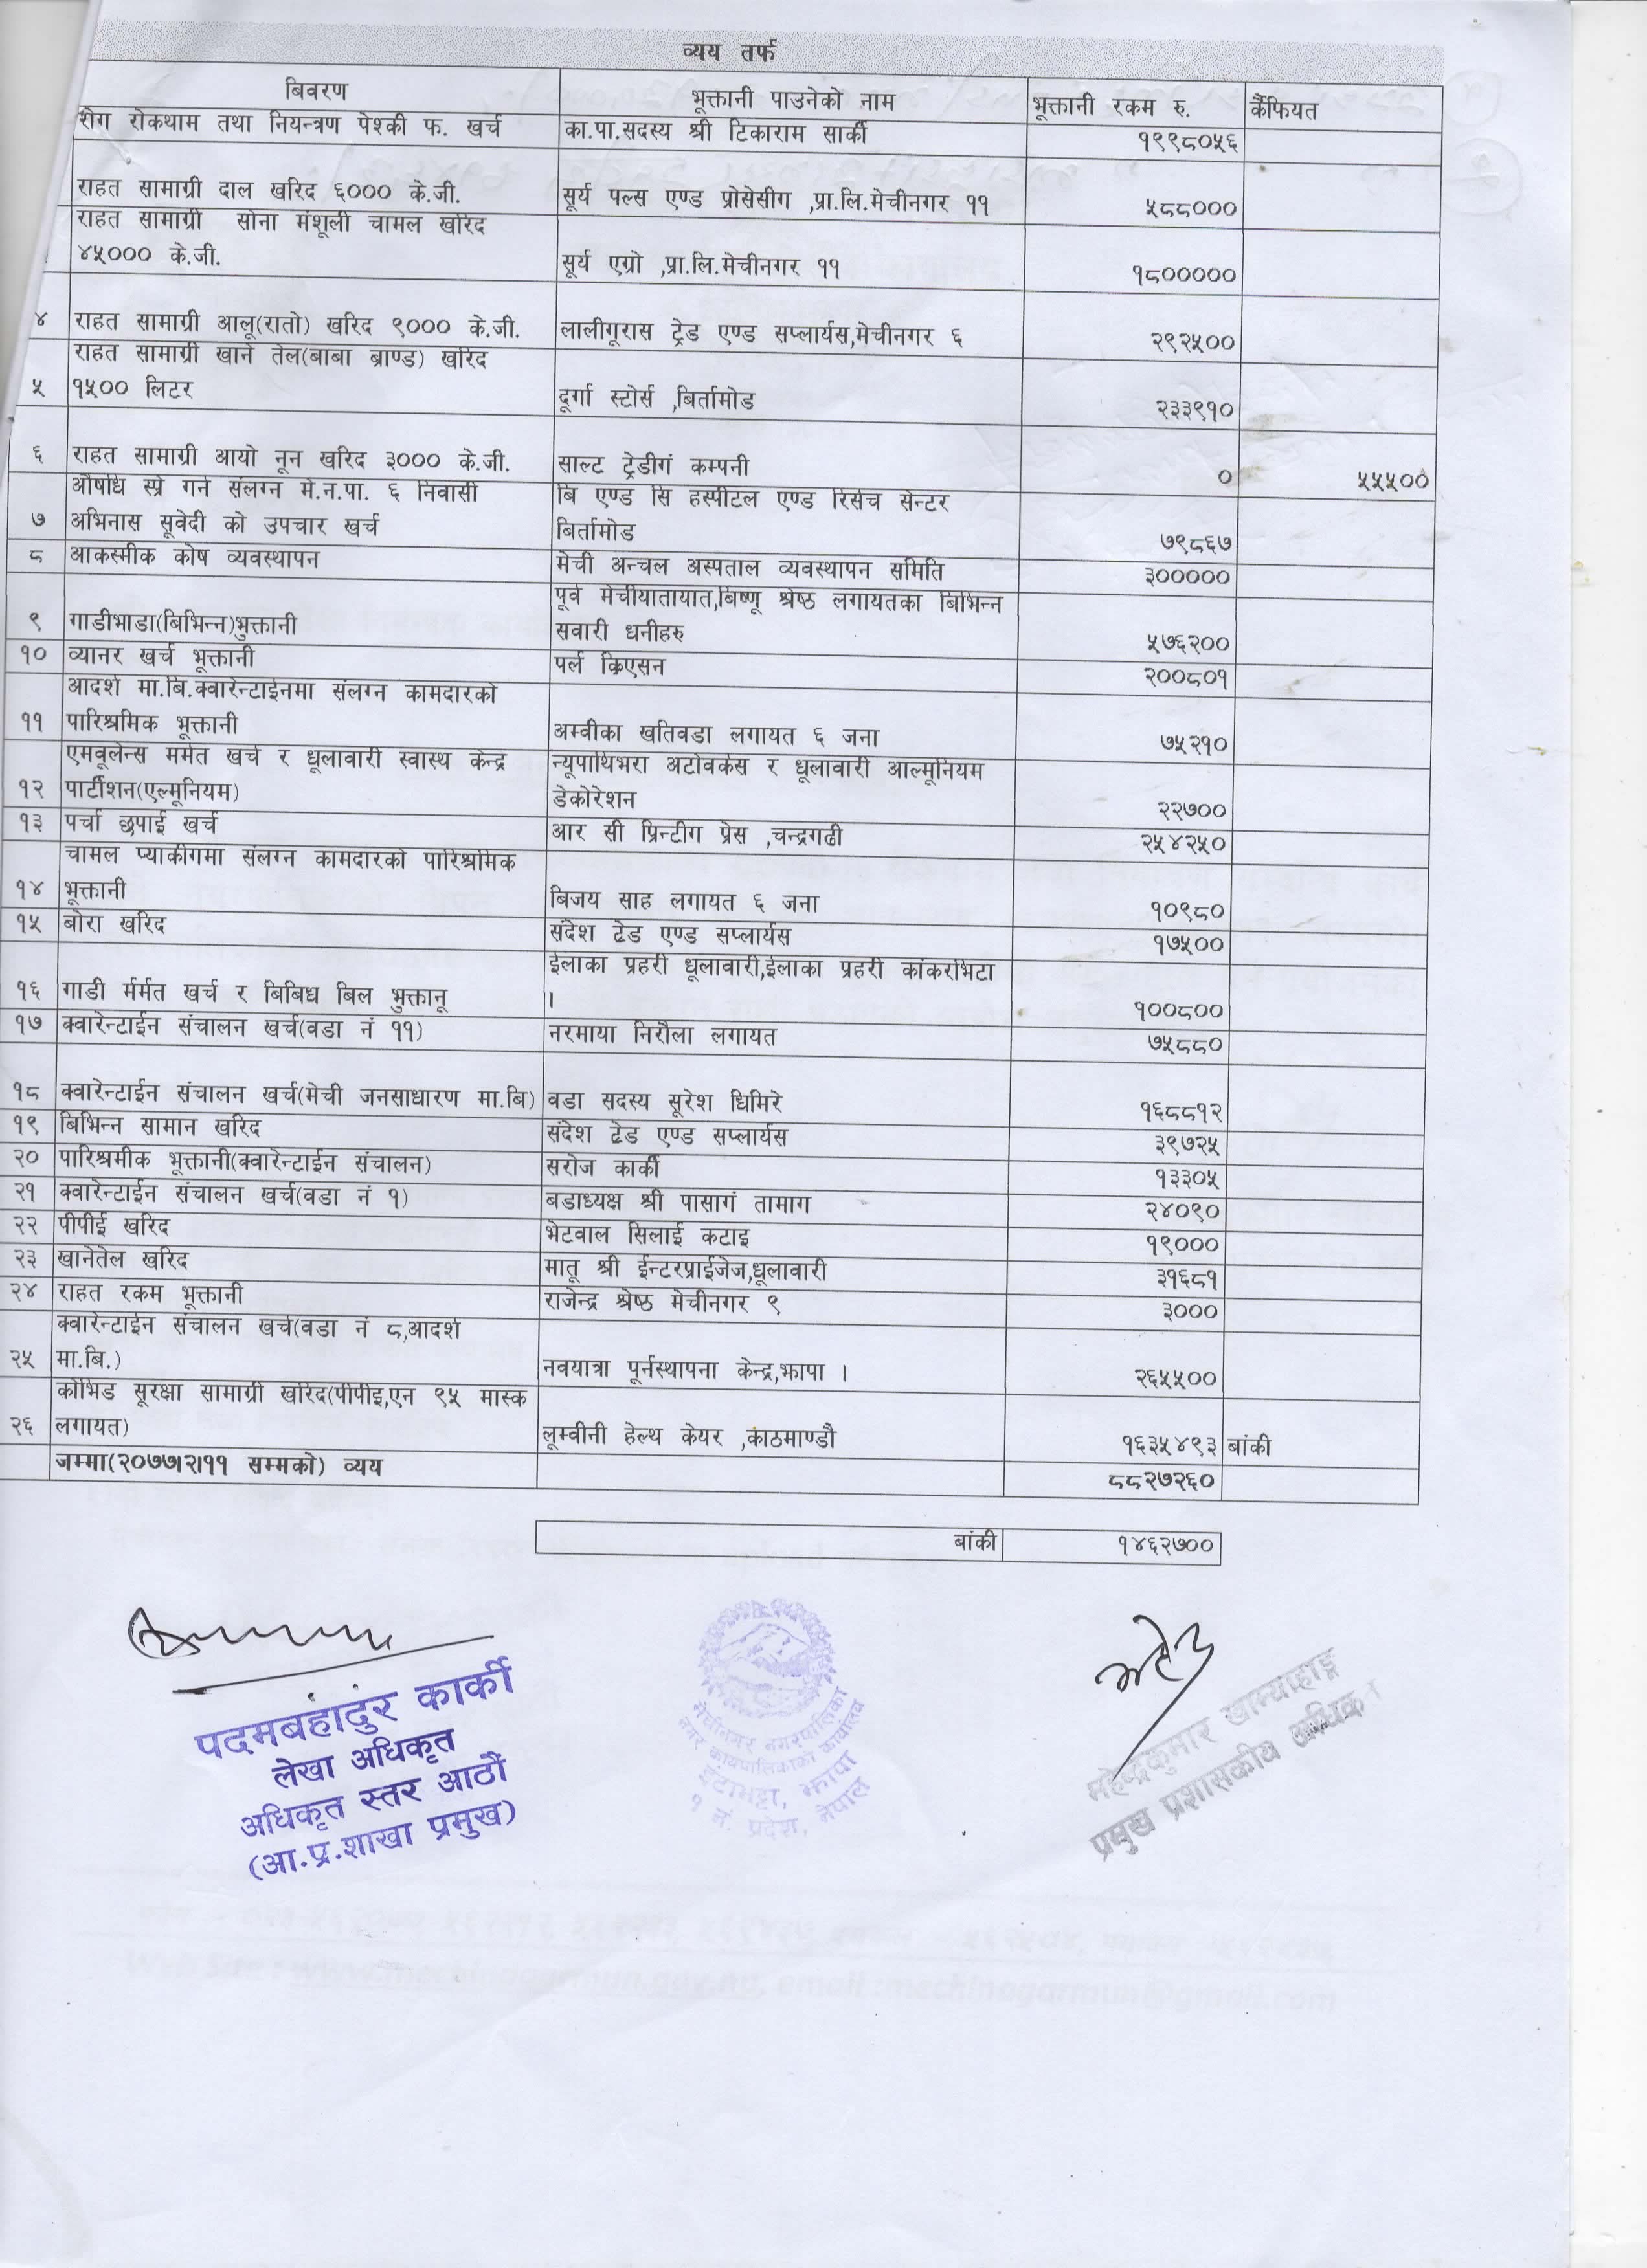 व्यय तर्फ
बिवरण भूक्तानी पाउनेको नाम भूक्तानी रकम रु. कैंफियत
रोग रोकथाम तथा नियन्त्रण पेश्की फ. खर्च का.पा.सदस्य श्री टिकाराम सार्की १९९८०५६
राहत सामाग्री दाल खरिद ६००० के.जी. सूर्य पल्स एण्ड प्रोसेसीग ,प्रा.लि.मेचीनगर ११ ५८८०००
राहत सामाग्री सोना मंशूली चामल खरिद
४५००० के.जी. सूर्य एग्रो ,प्रा.लि.मेचीनगर ११ १८०००००
४ राहत सामाग्री आलू(रातो) खरिद ९००० के.जी. लालीगूरास ट्रेड एण्ड सप्लार्यस,मेचीनगर ६ २९२५००
राहत सामाग्री खाने तेल(बाबा ब्राण्ड) खरिद
५ १५०० लिटर दूर्गा स्टोर्स ,बिर्तामोड २३३९१०
६ राहत सामाग्री आयो नून खरिद ३००० के.जी. साल्ट ट्रेडीगं कम्पनी ० ५५५००
औषधि स्प्रे गर्न संलग्न मे.न.पा. ६ निवासी बि एण्ड सि हस्पीटल एण्ड रिर्सच सेन्टर
७ अभिनास सूवेदी को उपचार खर्च बिर्तामोड ७९८६७
८ आकस्मीक कोष व्यवस्थापन मेची अन्चल अस्पताल व्यवस्थापन समिति ३०००००
पूर्व मेचीयातायात,बिष्णू श्रेष्ठ लगायतका बिभिन्न
९ गाडीभाडा(बिभिन्न)भुक्तानी सवारी धनीहरु ५७६२००
१० व्यानर खर्च भूक्तानी पर्ल क्रिएसन २००८०१
आदर्श मा.बि.क्वारेन्टाईनमा संलग्न कामदारको
११ पारिश्रमिक भूक्तानी अम्वीका खतिवडा लगायत ६ जना ७५२१०
एमवूलेन्स मर्मत खर्च र धूलावारी स्वास्थ केन्द्र न्यूपाथिभरा अटोवर्कस र धूलावारी आल्मूनियम
१२ पार्टीशन(एल्मूनियम) डेकोरेशन २२७००
१३ पर्चा छपाई खर्च आर सी प्रिन्टीग प्रेस ,चन्द्रगढी २५४२५०
चामल प्याकीगमा संलग्न कामदारको पारिश्रमिक
१४ भूक्तानी बिजय साह लगायत ६ जना १०९८०
१५ बोरा खरिद संदेश टेड एण्ड सप्लार्यस १७५००
ईलाका प्रहरी धूलावारी,ईलाका प्रहरी कांकरभिटा
१६ गाडी र्ममत खर्च र बिबिध बिल भुक्तानू । १००८००
१७ क्वारेन्टाईन संचालन खर्च(वडा नं ११) नरमाया निरौला लगायत ७५८८०
१८ क्वारेन्टाईन संचालन खर्च(मेची जनसाधारण मा.बि) वडा सदस्य सूरेश धिमिरे १६८८१२
१९ बिभिन्न सामान खरिद संदेश टेड एण्ड सप्लार्यस ३९७२५
२० पारिश्रमीक भूक्तानी(क्वारेन्टाईन संचालन) सरोज कार्की १३३०५
२१ क्वारेन्टाईन संचालन खर्च(वडा नं १) बडाध्यक्ष श्री पासागं तामाग २४०९०
२२ पीपीई खरिद भेटवाल सिलाई कटाइ १९०००
२३ खानेतेल खरिद मातू श्री ईन्टरप्राईजेज,धूलावारी ३१६८१
२४ राहत रकम भूक्तानी राजेन्द्र श्रेष्ठ मेचीनगर ९ ३०००
क्वारेन्टाईन संचालन खर्च(वडा नं ८,आदर्श
२५ मा.बि.) नवयात्रा पूर्नस्थापना केन्द्र,झापा । २६५५००
कोभिड सूरक्षा सामाग्री खरिद(पीपीइ,एन ९५ मास्क
२६ लगायत) लूम्वीनी हेल्थ केयर ,काठमाण्डौ १६३५४९३ बांकी
जम्मा(२०७७।२।११ सम्मको) व्यय ८८२७२६०
बांकी १४६२७००
पदमबहादुर कार्की
लेखा अधिकृत
अधिकृत स्तर आठौं
(आ.प्र.शाखा प्रमुख)
मेचीनगर नगरपालिका
नगर कार्यपालिकाको कार्यालय
इटाभट्टा, झापा
१ नं. प्रदेश, नेपाल
महेन्द्र
महेन्द्रकुमार खाम्याहाङ्ग
प्रमुख प्रशासकीय अधिकृत